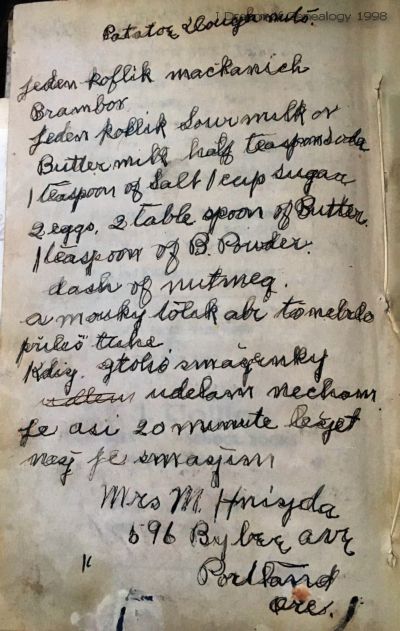 J Dockery Genealogy 1998
Patatoe Doughnuts.
Jeden koflik mačkanich
Brambor
Jeden koflik Sour milk or
Butter milk half teaspoon soda
1 teaspoon of Salt 1 cup sugar
2 eggs, 2 table spoon of Butter.
1 teaspoon of B. Powder.
dash of nutmeg.
a mouky tolik abi to nebilo
přiliš tuhe
Kdiž
udelam necham
je asi 20 minute ležet
než je smažim
Mrs M. Hnizda
596 Bybee ave
Portland
Ore.